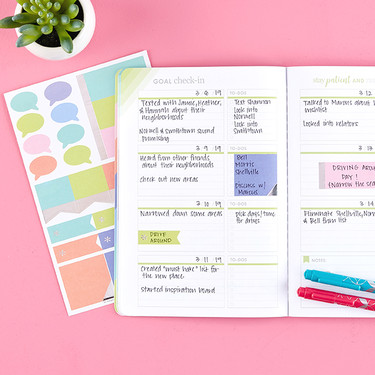 GOAL check-in
3 8 19
TO-DOS:
Texted with Jamie, Heather,
& Hannah about their
neighborhoods
Norwell & Smithtown sound
promising
Text Shannon
Look into
Norwell
Look into
Smithtown
3 9 19
TO-DOS:
Heard from other friends
about their neighborhoods
Check out new areas
Bell
Morris
Shellville
Discuss w/
Marcus
3 10 19
TO-DOS:
Narrowed down some areas
DRIVE
AROUND
pick days/times
for drives
3 11 19
TO-DOS:
Created "must have" list for
the new place
Started inspiration board
patient
3 12
Talked to Marcus about
wishlist
Looked into realtors
DRIVING AROUND
DAY!
(Narrow the sea
Eliminate Shellville,
& Bell from list
NOTES: